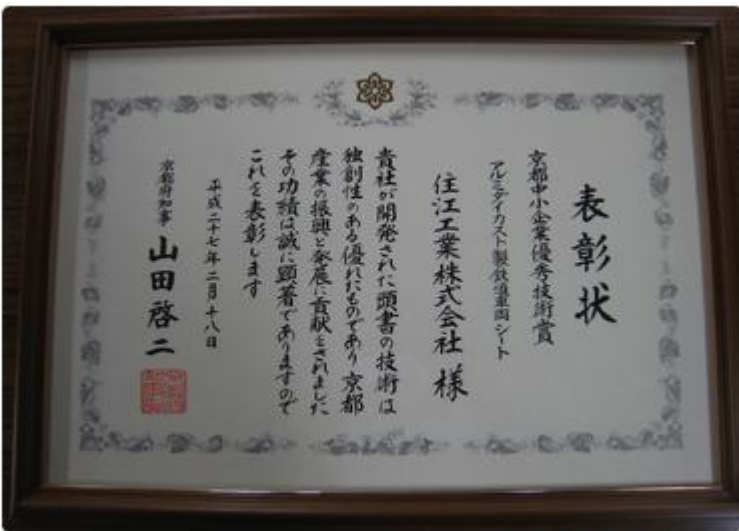 表彰状
京都中小企業優秀技術賞
アルミダイカスト製鉄道車両シート
住江工業株式会社 様
貴社が開発された頭書の技術は
独創性のある優れたものであり京都
産業の振興と発展に貢献をされました
その功績は誠に顕著でありますので
これを表彰します
平成二十七年二月十八日
京都府知事 山田啓二